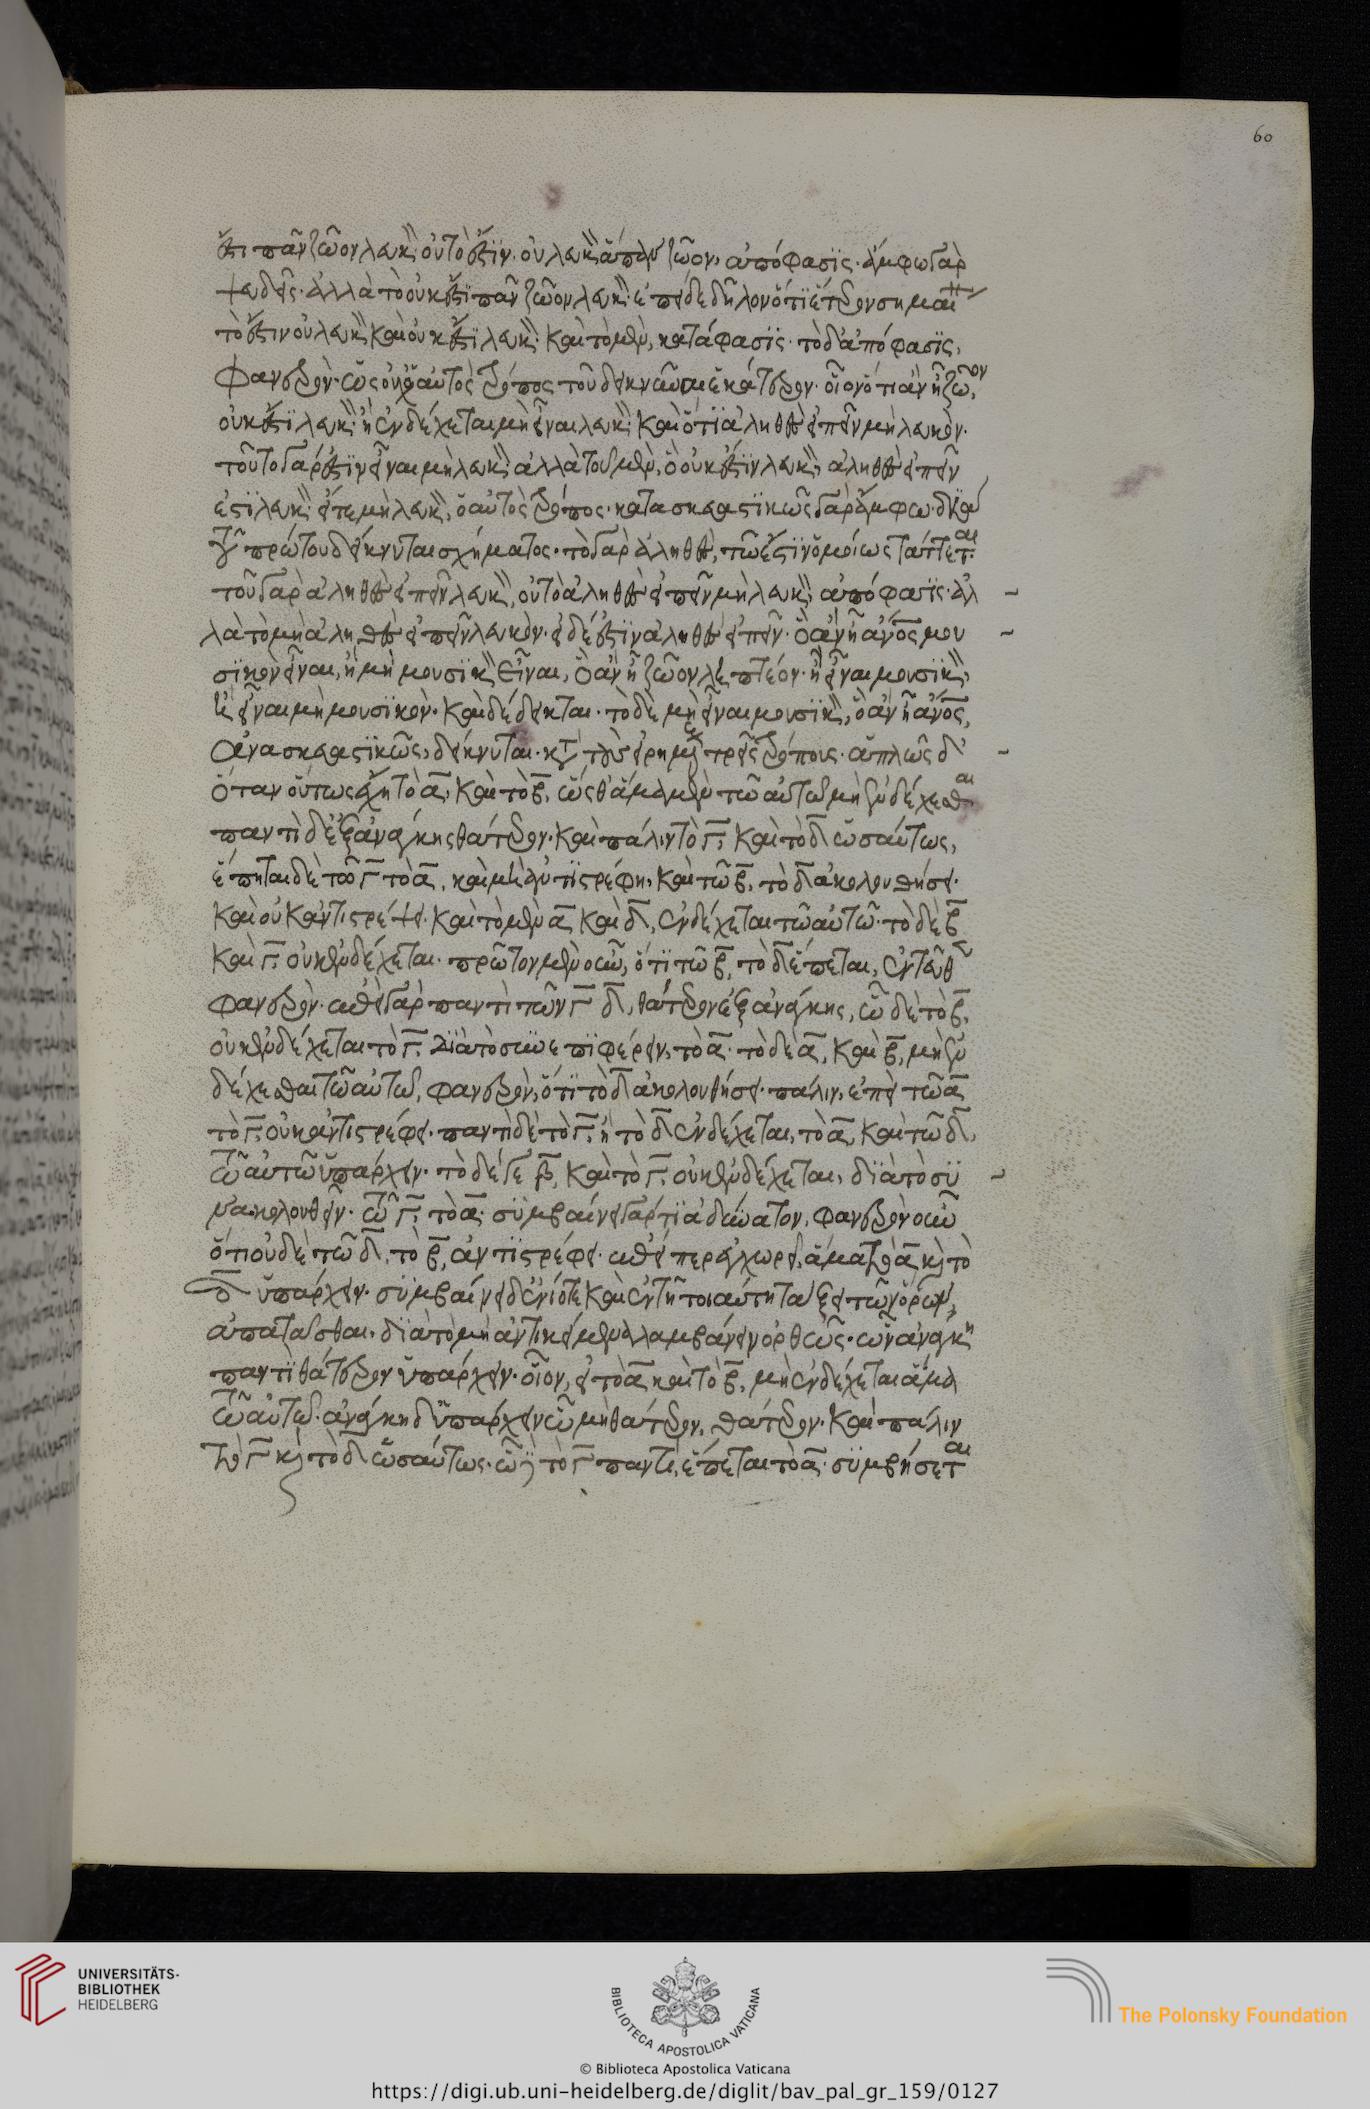 ἔστι πᾶν ζῶον λευκ` οὐ τὸ ἔστϊν οὐ λευκ` ἅπαν ζῶον, ἀπόφασϊς· ἄμφω γὰρ
ψευδεῖς· ἀλλὰ τὸ οὐκ ἔστϊ πᾶν ζῶον λευκ` ἐπεὶ δὲ δῆλον ὅτϊ ἕτερον σημαί
τὸ ἔστιν οὐ λευκ` καὶ οὐκ ἔστϊ λευκ` καὶ τὸ μὲν, κατάφασϊς· τὸ δ' ἀπόφασϊς,
φανερὸν· ὡς οὐχ ὁ αὐτὸς τρόπος τοῦ δεικνύναι ἑκάτερον· οἷον ὅτι ἂν ἦ ζῶον,
οὐκ ἔστϊ λευκ` ἢ ἐνδέχεται μὴ εἶναι λευκ` καὶ ὅτϊ ἀληθὲς εἰπεῖν μὴ λευκὸν·
τοῦτο γάρ ἔστϊν εἶναι μὴ λευκ` ἀλλὰ τοῦ μὲν, ὃ οὐκ ἔστϊν λευκ` ἀληθὲς εἰπεῖν
ἐστϊ λευκ` εἴτε μὴ λευκ`, ὁ αὐτὸς τρόπος· κατασκευαστϊκῶς γὰρ ἄμφω διὰ
τοῦ πρώτου δείκνυται σχήματος· τὸ γὰρ ἀληθὲς, τῶ ἔστϊν ὁμοίως τάττεται·
τοῦ γὰρ ἀληθὲς εἰπεῖν λευκ`, οὐ τὸ ἀληθὲς εἰπεῖν μὴ λευκ` ἀπόφασϊς· ἀλ
λὰ τὸ μὴ ἀληθὲς εἰπεῖν λευκόν· εἰ δέ ἔστϊν ἀληθὲς εἰπεῖν· ὃ ἂν ἦ ἄν͞ος μου
σϊκὸν εἶναι, ἢ μὴ μουσϊκ` εἶναι, ὃ ἂν ἦ ζῶον ληπτέον· ἢ εἶναι μουσϊκ`,
ἢ εἶναι μὴ μουσϊκὸν· καὶ δέδεικται· τὸ δὲ μὴ εἶναι μουσϊκ`, ὃ ἂν ἦ ἄν͞ος,
ἀνασκευαστϊκῶς, δείκνυται· κατὰ τοὺς εἰρημένους τρεῖς τρόπους· ἁπλῶς δ'
ὅταν οὕτως ἔχη τὸ α͞, καὶ τὸ β͞, ὥσθ' ἅμα μὲν τῶ αὐτῶ μὴ ἐνδέχεσθαι
παντὶ δὲ ἐξ ἀνάγκης θάτερον· καὶ πάλιν τὸ γ͞· καὶ τὸ δ͞ ὡσαύτως,
ἕπηται δὲ τῶ γ͞ τὸ α͞, καὶ μὴ ἀντϊστρέφη, καὶ τῶ β͞, τὸ δ͞ ἀκολουθήσει·
καὶ οὐκ ἀντιστρέψει· καὶ τὸ μὲν α͞ καὶ δ͞, ἐνδέχεται τῶ αὐτῶ· τὸ δὲ β͞
καὶ γ͞ οὐκ ἐνδέχεται· πρῶτον μὲν οὖν, ὅτϊ τῶ β͞, τὸ δ͞ ἕπεται, ἐντεῦθεν
φανερὸν· ἐπεὶ γὰρ παντὶ τῶν γ͞ δ͞, θάτερον ἐξ ἀνάγκης, ὧ δὲ τὸ β͞,
οὐκ ἐνδέχεται τὸ γ͞· διὰ τὸ συνεπϊφέρειν, τὸ α͞· τὸ δὲ α͞, καὶ β͞, μὴ ἐν
δέχεσθαι τῶ αὐτῶ, φανερὸν, ὅτϊ τὸ δ͞ ἀκολουθήσει· πάλιν, ἐπεὶ τῶ α͞
τὸ γ͞· οὐκ ἀντιστρέφει· παντὶ δὲ τὸ γ͞· ἢ τὸ δ͞ ἐνδέχεται, τὸ α͞, καὶ τῶ δ͞,
τῶ αὐτῶ ὑπάρχειν· τὸ δέ γε β͞, καὶ τὸ γ͞· οὐκ ἐνδέχεται, διὰ τὸ συ
νακολουθεῖν· τῶ γ͞· τὸ α͞· συμβαίνει γάρ τι ἀδύνατον, φανερὸν οὖν
ὅτι οὐδὲ τῶ δ͞, τὸ β͞, ἀντϊστρέφει· ἐπείπερ ἐγχωρεῖ, ἅμα τὸ α͞ κὶ τὸ
δ͞ ὑπάρχειν· συμβαίνει δ' ἐνίοτε καὶ ἐν τῆ τοιαύτη τάξει τῶν ὅρων,
ἀπατᾶσθαι, διὰ τὸ μὴ ἀντικείμενα λαμβάνειν ὀρθῶς· ὧν ἀνάγκη
παντὶ θάτερον ὑπάρχειν· οἷον, εἰ τὸ α͞ καὶ τὸ β͞, μὴ ἐνδέχεται ἅμα
τῶ αὐτῶ· ἀνάγκη δ' ὑπάρχειν ὧ μὴ θάτερον, θάτερον· καὶ πάλιν
τὸ γ͞ κὶ τὸ δ͞ ὡσαύτως· ὧ δὲ τὸ γ͞ παντὶ, ἕπεται τὸ α͞· συμβήσεται
60
UNIVERSITÄTS-
BIBLIOTHEK
HEIDELBERG
BIBLIOTECA APOSTOLICA VATICANA
The Polonsky Foundation
© Biblioteca Apostolica Vaticana
https://digi.ub.uni-heidelberg.de/diglit/bav_pal_gr_159/0127